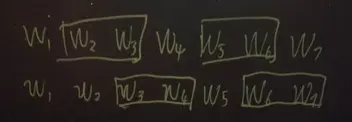 W₁ W₂ W₃ W₄ W₅ W₆ W₇
W₁ W₂ W₃ W₄ W₅ W₆ W₇